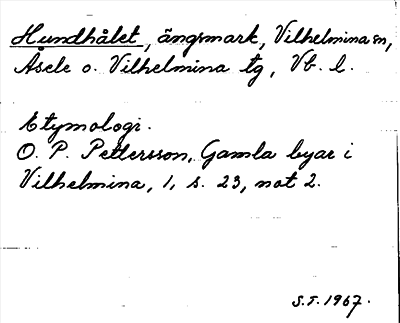 Hundhålet, ängsmark, Vilhelmina sn,
Åsele o. Vilhelmina tg, Vb. l.
Etymologi.
O. P. Pettersson, Gamla byar i
Vilhelmina, 1, s. 23, not 2.
S.T. 1967.